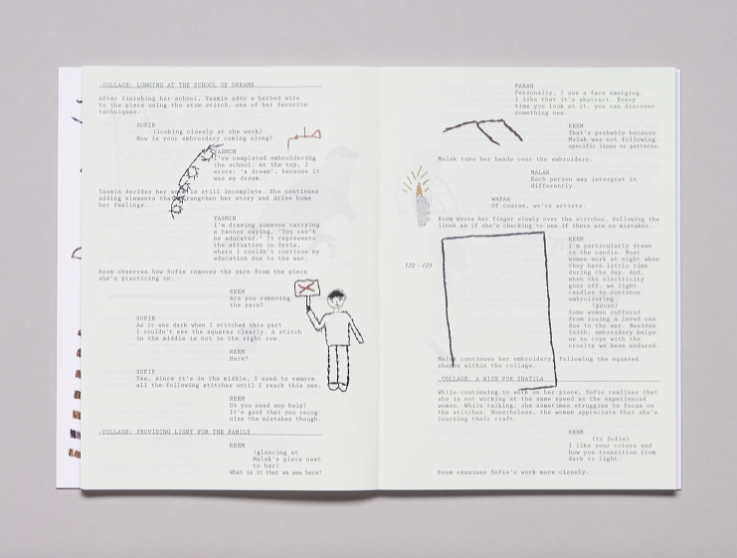 COLLAGE: LONGING AT THE SCHOOL OF DREAMS
After finishing her school, Yasmin adds a barbed wire
to the piece using the stem stitch, one of her favorite
techniques.
SOFIE
(looking closely at the work)
How is your embroidery coming along?
حلم
YASMIN
I've completed embroidering
the school. At the top, I
wrote: 'a dream', because it
was my dream.
Yasmin decides her work is still incomplete. She continues
adding elements that strengthen her story and drive home
her feelings.
YASMIN
I'm drawing someone carrying
a banner saying, 'You can't
be educated.' It represents
the situation in Syria,
where I couldn't continue my
education due to the war.
Reem observes how Sofie removes the yarn from the piece
she's practicing on.
REEM
Are you removing
the yarn?
SOFIE
As it was dark when I stitched this part
I couldn't see the squares clearly. A stitch
in the middle is not in the right row.
REEM
Here?
SOFIE
Yes, since it's in the middle, I need to remove
all the following stitches until I reach this one.
REEM
Do you need any help?
It's good that you recog-
nize the mistakes though.
COLLAGE: PROVIDING LIGHT FOR THE FAMILY
REEM
(glancing at
Malak's piece next
to her)
What is it that we see here?
FARAH
Personally, I see a face emerging.
I like that it's abstract. Every
time you look at it, you can discover
something new.
REEM
That's probably because
Malak was not following
specific lines or patterns.
Malak runs her hands over the embroidery.
MALAK
Each person may interpret it
differently.
WAFAA
Of course, we're artists.
Reem moves her finger slowly over the stitches, following the
lines as if she's checking to see if there are no mistakes.
REEM
I'm particularly drawn
to the candle. Most
women work at night when
they have little time
during the day. And,
when the electricity
goes off, we light
candles to continue
embroidering.
(pause)
Some women suffered
from losing a loved one
due to the war. Besides
faith, embroidery helps
us to cope with the
cruelty we have endured.
122 - 123
Malak continues her embroidery, following the squared
shapes within the collage.
COLLAGE: A WISH FOR SHATILA
While continuing to work on her piece, Sofie realizes that
she is not working at the same speed as the experienced
women. While talking, she sometimes struggles to focus on
the stitches. Nonetheless, the women appreciate that she's
learning their craft.
REEM
(to Sofie)
I like your colors and
how you transition from
dark to light.
Reem examines Sofie's work more closely.